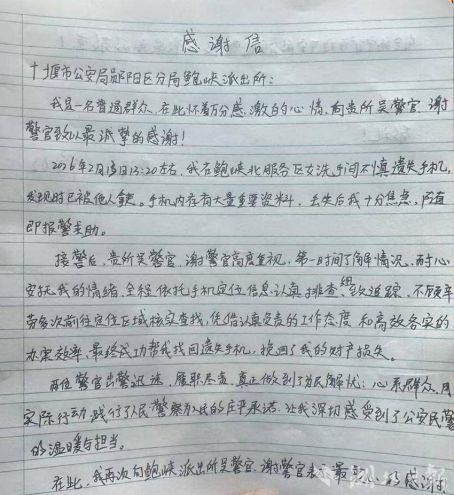 感谢信
十堰市公安局郧阳区分局鲍峡派出所：
我是一名普通群众，在此怀着万分感激的心情，向贵所吴警官、谢
警官致以最诚挚的感谢！
2026年2月13日13:20左右，我在鲍峡北服务区女洗手间不慎遗失手机，
发现时已被他人拿走。手机内存有大量重要资料，丢失后我十分焦急，
即报警求助。
接警后，贵所吴警官、谢警官高度重视，第一时间了解情况，耐心
安抚我的情绪，全程依托手机定位信息认真排查、组织追踪，不顾辛
劳多次前往定位区域核实查找，凭借认真负责的工作态度和高效务实的
办案效率，最终成功帮我找回遗失手机，挽回了我的财产损失。
两位警官出警迅速、履职尽责，真正做到了为民解忧、心系群众，用
实际行动践行了人民警察为人民的庄严承诺，让我深切感受到了公安民警
的温暖与担当。
在此，我再次向鲍峡派出所吴警官、谢警官表 最 的感谢